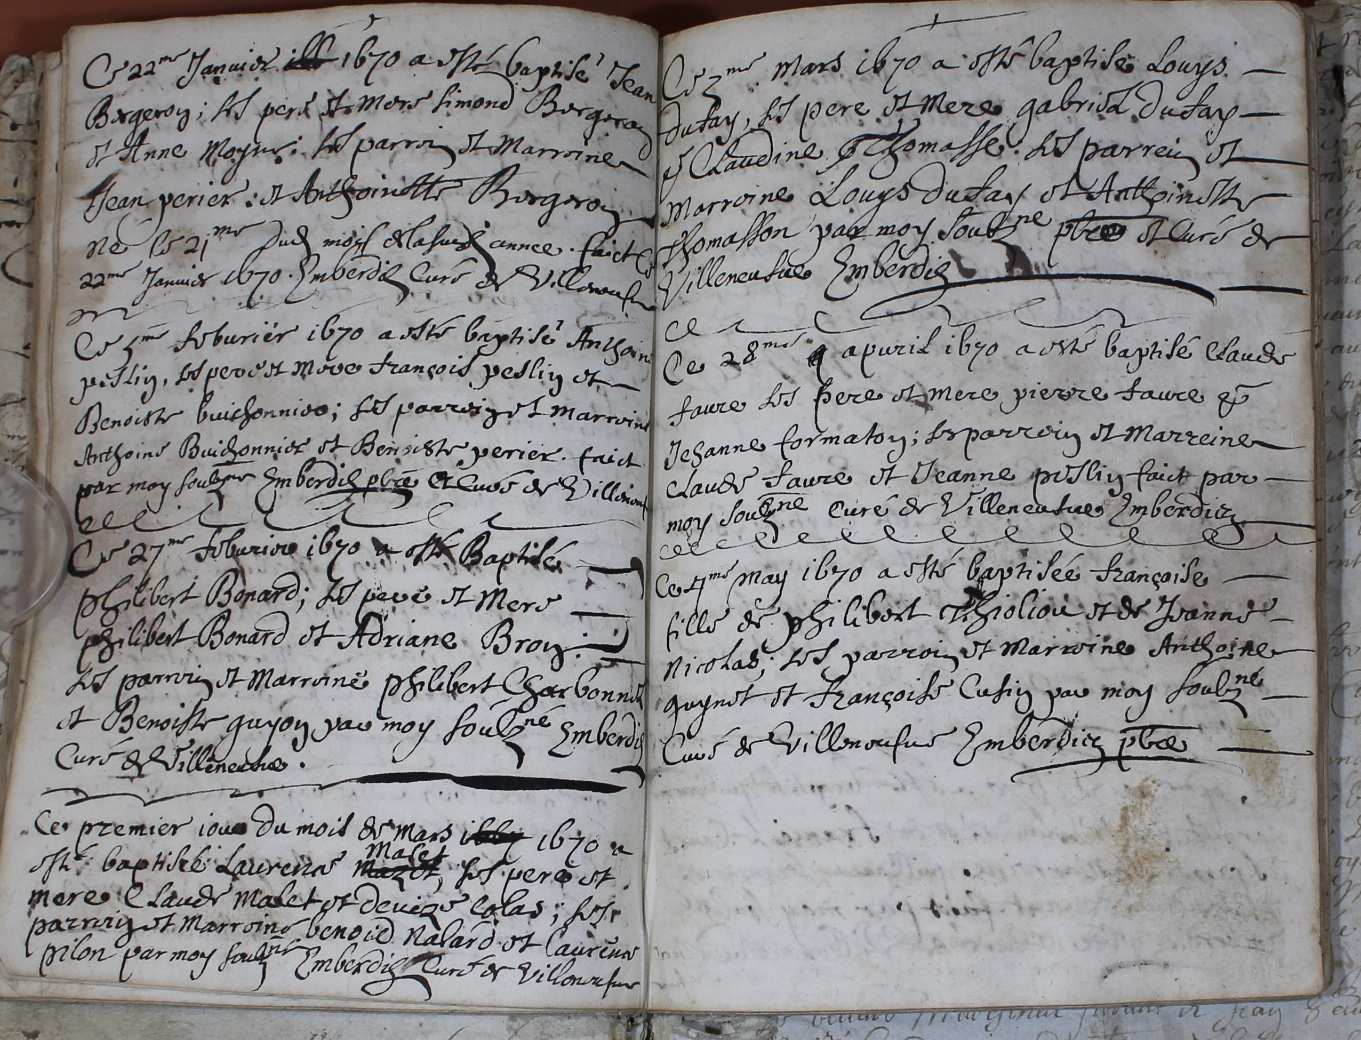 Ce 22me Janvier 1670 a esté baptisé Jean
Bergeron; ses pere et mere Simond Bergeron
et Anne Moyne: ses parrin et Marroine
Jean perier: et Anthoinette Bergeron
né le 21me dud moys de la susd annee. faict ce
22me Janvier 1670. Emberdiz Curé de Villeneufve
Ce 5me feburier 1670 a esté baptisé Anthoine
peslin, ses pere et mere françois peslin et
Benoiste buichonniere; ses parroin et marroine
Anthoine Buichonnier et Benoiste perier. faict
par moy soubzne Emberdiz pbre et Curé de Villeneuf
Ce 27me feburier 1670 a esté Baptisé
philibert Bonard; ses pere et Mere
philibert Bonard et Adriane Broy:
ses parroin et Marroine philibert Charbonnet
et Benoiste guyon par moy soubzné Emberdiz
Curé de Villeneufve.
Ce premier iour du mois de Mars 1670 a
esté baptisée Laurence Malet, ses pere et
mere Claude Malet et Denize Colas; ses
parroin et Marroine benoid Nalard et Laurence
pilon par moy soubzné Emberdiz Curé de Villeneufve
Ce 3me Mars 1670 a esté baptisé Louys
dufay, ses pere et Mere gabriel dufay
& Claudine Thomasse. ses parrein et
Marroine Louys dufay et Anthoinette
thomasson par moy soubzne pbre et Curé de
Villeneufve Emberdiz
Ce
Ce 28me apuril 1670 a esté baptisé Claude
faure ses pere et mere pierre faure &
Jehanne formaton; ses parroin et Marreine
Claude faure et Jeanne peslin faict par
moy soubzne curé de Villeneufve Emberdiz
Ce 4me May 1670 a esté baptisée françoise
fille de philibert et de Jeanne
Nicolas; ses parroin et Marroine Anthoine
guynet et françoise Cusin par moy soubzné
Curé de Villeneufve Emberdiz pbre